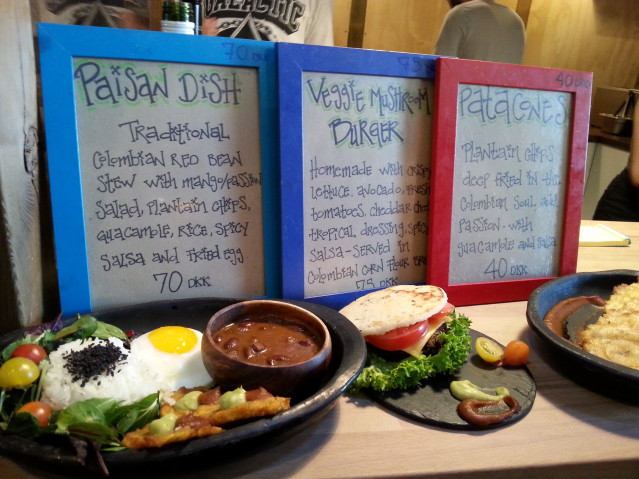 GALACTIC
70 DKK
PAISAN DISH
TRADITIONAL
COLOMBIAN RED BEAN
STEW WITH MANGO/PASSION
SALAD, PLANTAIN CHIPS,
GUACAMOLE, RICE, SPICY
SALSA AND FRIED EGG
70 DKK
75
VEGGIE MUSHROOM
BURGER
HOMEMADE WITH CRISPY
LETTUCE, AVOCADO, FRESH
TOMATOES, CHEDDAR CHEESE
TROPICAL DRESSING, SPICY
SALSA - SERVED IN
COLOMBIAN CORN FLOUR
75 DKK
40 DKK
PATACONES
PLANTAIN CHIPS
DEEP FRIED IN THE
COLOMBIAN SOUL AND
PASSION - WITH
GUACAMOLE AND SALSA
40 DKK